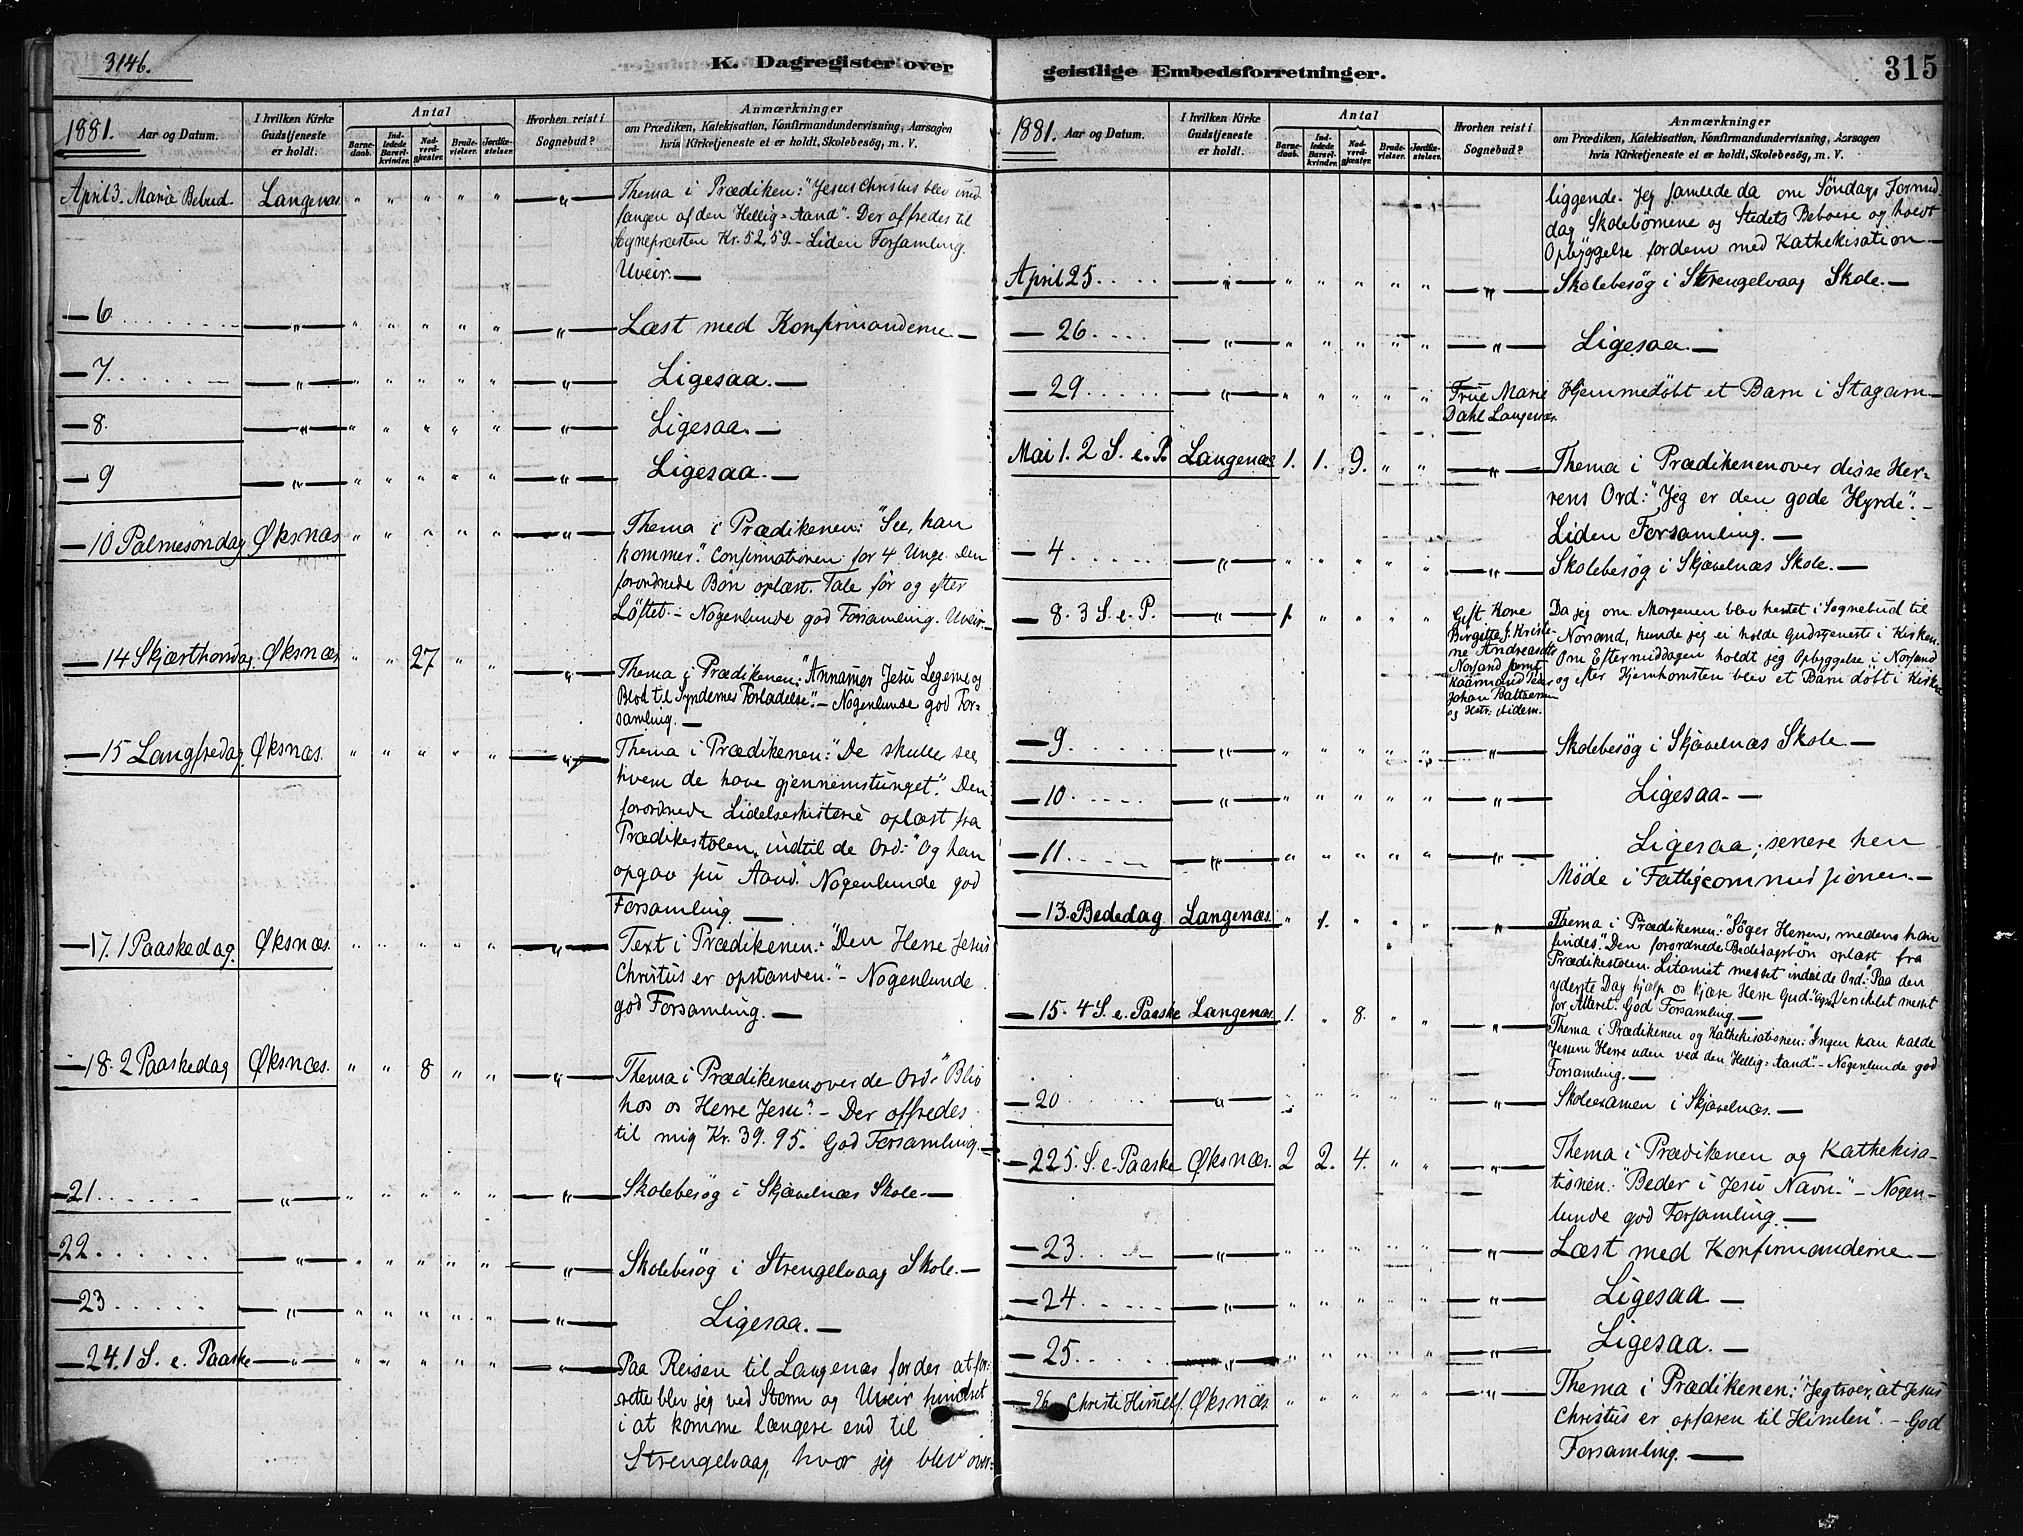 3146.
K. Dagregister over
1881. Aar og Datum.
I hvilken Kirke Gudstjeneste er holdt.
Antal
Barnedaab. Indledede Barselkvinder. Nadverdgjæster. Brudevielser. Jordfæstelser.
Hvorhen reist i Sognebud?
Anmærkninger
om Prædiken, Katekisation, Konfirmandundervisning, Aarsagen
hvis Kirketjeneste ei er holdt, Skolebesøg, m. V.
April 3. Mariæ Bebud. Langenæs. " " " " " " Thema i Prædiken: "Jesus Christus blev und-
fangen af den Hellig-Aand". Der offredes til
Sognepræsten Kr. 52,59. – Liden Forsamling.
Uveir. —
— 6 . . . . " " " " " " " Læst med Konfirmanderne —
— 7 . . . . " " " " " " " Ligesaa. —
— 8. " " " " " " " Ligesaa. —
— 9 " " " " " " " Ligesaa. —
— 10 Palmesøndag Øksnæs " " " " " " Thema i Prædikenen: "See, han
kommer". Confirmationen for 4 Unge. Den
forordnede Bøn oplæst. Tale før og efter
Løftet – Nogenlunde god Forsamling. Uveir. —
— 14 Skjærthorsdag. Øksnæs " " 27 " " " Thema i Prædikenen: "Annamer Jesu Legeme og
Blod til Syndernes Forladelse". – Nogenlunde god For-
samling. —
— 15 Langfredag Øksnæs. " " " " " " Thema i Prædikenen: "De skulle see
hvem de have gjennemstunget". Den
forordnede Lidelseshistorie oplæst fra
Prædikestolen indtil de Ord: "Og han
opgav sin Aand". Nogenlunde god
Forsamling —
— 17. 1 Paaskedag. Øksnæs. " " " " " " Text i Prædikenen: "Den Herre Jesus
Christus er opstanden." – Nogenlunde
god Forsamling. —
— 18. 2 Paaskedag Øksnæs. " " 8 " " " Thema i Prædikenen over de Ord: "Bliv
hos os Herre Jesu". – Der offredes
til mig Kr. 39. 95. God Forsamling. —
— 21 . . . . " " " " " " " Skolebesøg i Skjævelnæs Skole —
— 22 . . . . " " " " " " " Skolebesøg i Strengelvaag Skole. —
— 23 . . . . " " " " " " " Ligesaa. —
— 24. 1 S. e. Paaske " " " " " " " Paa Reisen til Langenæs for der at for-
rette blev jeg ved Storm og Uveir hindret
i at komme længere end til
Strengelvaag, hvor jeg blev over-
geistlige Embedsforretninger.
315
1881. Aar og Datum.
I hvilken Kirke Gudstjeneste er holdt.
Antal
Barnedaab. Indledede Barselkvinder. Nadverdgjæster. Brudevielser. Jordfæstelser.
Hvorhen reist i Sognebud?
Anmærkninger
om Prædiken, Katekisation, Konfirmandundervisning, Aarsagen
hvis Kirketjeneste ei er holdt, Skolebesøg, m. V.
liggende. Jeg samlede da om Søndags Formid-
dag Skolebørnene og Stedets Beboere og holdt
Opbyggelse for dem med Kathekisation —
April 25. . . . . " " " " " " " Skolebesøg i Strengelvaag Skole. —
— 26 . . . . " " " " " " " Ligesaa. —
— 29 . . . . " " " " " " Frue Marie Dahl Langenæs. Hjemmedøbt et Barn i Stagarn —
Mai 1. 2 S. e. P. Langenæs 1. 1. 9. " " " Thema i Prædikenen over disse Her-
rens Ord: "Jeg er den gode Hyrde". –
Liden Forsamling. —
— 4 . . . . " " " " " " " Skolebesøg i Skjævelnæs Skole. —
— 8. 3 S. e. P. " 1 " " " " Gift Kone Birgitte f. Kristene Andreasdtr Norsand samt Kaarmand Peder Johan Baltzersen og Hstr. ibidem. Da jeg om Morgenen blev hentet i Sognebud til
Norsand, kunde jeg ei holde Gudstjeneste i Kirken.
Om Eftermiddagen holdt jeg Opbyggelse i Norsand
og efter Hjemkomsten blev et Barn døbt i Kirken
— 9 . . . . " " " " " " " Skolebesøg i Skjævelnæs Skole —
— 10 . . . . " " " " " " " Ligesaa. —
— 11 . . . . " " " " " " " Ligesaa; senere hen
Møde i Fattigcommissionen. —
— 13. Bededag Langenæs. " 1. " " " " Thema i Prædikenen: "Søger Herren, medens han
findes." Den forordnede Bededagsbøn oplæst fra
Prædikestolen. Litaniet messet indtil de Ord: "Paa den
yderste Dag hjælp os kjære Herre Gud." Verseklet messet
for Alteret. God Forsamling. —
— 15. 4 S. e. Paaske Langenæs. 1. " 8. " " " Thema i Prædikenen og Kathekisationen: "Ingen kan kalde
Jesum Herre uden ved den Hellig-Aand". – Nogenlunde god
Forsamling. —
— 20 . . . . " " " " " " " Skoleexamen i Skjævelnæs. —
— 22 5. S. e. Paaske Øksnæs. 2 2. 4. " " " Thema i Prædikenen og Kathekisa-
tionen: "Beder i Jesu Navn." – Nogen-
lunde god Forsamling. —
— 23 . . . . " " " " " " " Læst med Konfirmanderne —
— 24 . . . . " " " " " " " Ligesaa. —
— 25 . . . . " " " " " " " Ligesaa. —
— 26. Christi Himelf. Øksnæs. " " " " " " Thema i Prædikenen: "Jeg troer, at Jesus
Christus er opfaren til Himlen". – God
Forsamling. —